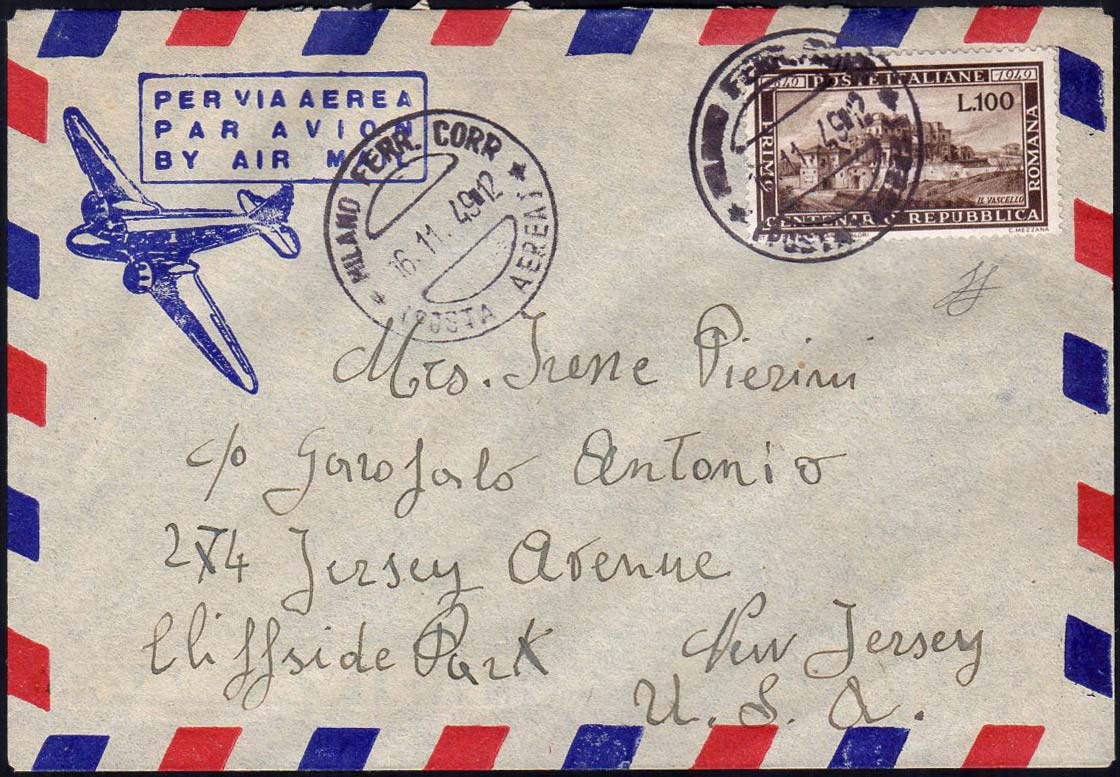 PER VIA AEREA
PAR AVION
BY AIR MAIL
MILANO FERR. CORR
16.11.49 12
(POSTA AEREA)
1849 POSTE ITALIANE 1949
L.100
PRIMO
ROMANA
IL VASCELLO
CENTENARIO REPUBBLICA
C. MEZZANA
Mrs. Irene Pierini
c/o Garofalo Antonio
274 Jersey Avenue
Cliffside Park New Jersey
U. S. A.